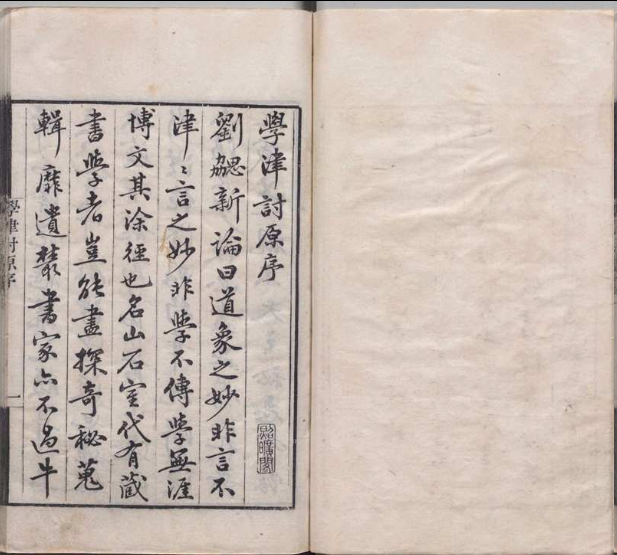 學津討原序
劉勰新論曰道象之妙非言不
津〻言之妙非學不傳學無涯
博文其涂徑也名山石室代有藏
書學者豈能盡探奇秘蒐
輯靡遺叢書家亦不過半
照曠閣
學津討原序
一